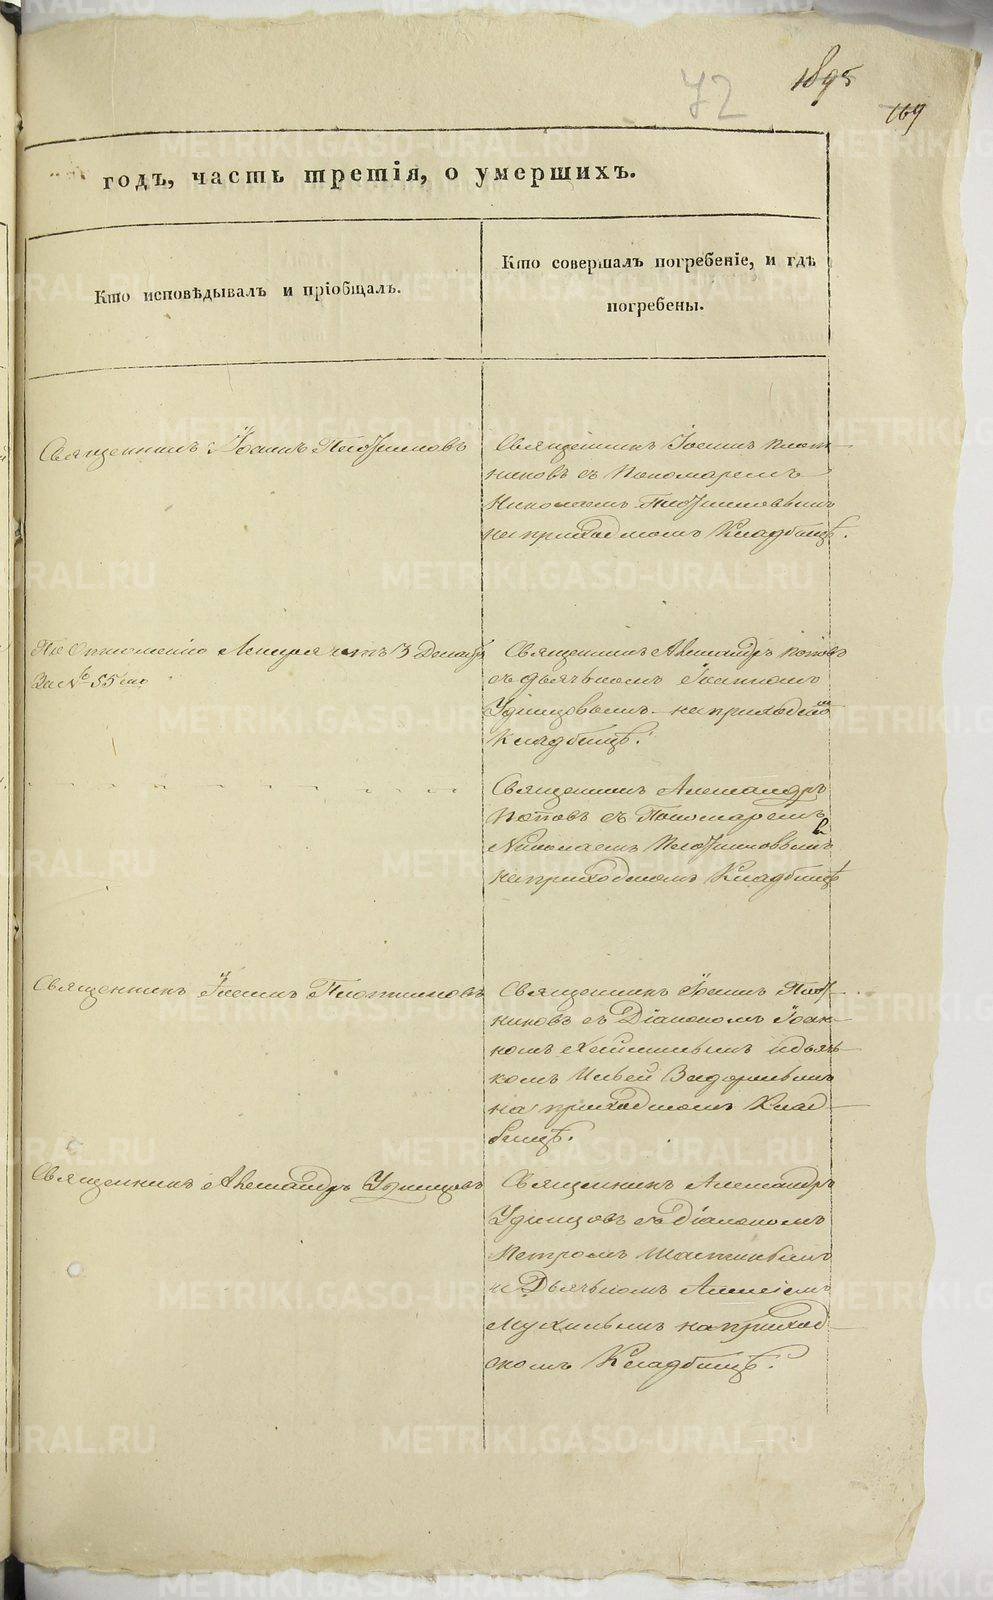 72
1895
169
годъ, часть третія, о умершихъ.
Кто исповѣдывалъ и пріобщалъ.
Кто совершалъ погребеніе, и гдѣ
погребены.
Священникъ Іоаннъ Плотниковъ
Священникъ Іоаннъ Плот-
никовъ съ Пономаремъ
Николаемъ Плотниковымъ
на приходскомъ Кладбищѣ.
По Отношенію 13 Декабр
За № 55
Священникъ Александръ Поповъ
съ дьячькомъ Іоанномъ
Удинцовымъ на приходском
Кладбищѣ.
Священникъ Александръ
Поповъ съ Пономаремъ
Николаемъ Плотниковымъ
на приходскомъ Кладбищѣ
Священникъ Іоаннъ Плотниковъ
Священникъ Іоаннъ Плот-
никовъ съ Діакономъ Іоан-
номъ и дьяч-
комъ Ильей
на приходскомъ Клад-
бищѣ.
Священникъ Александръ Удинцовъ
Священникъ Александръ
Удинцовъ съ Діакономъ
Петромъ
и Дьячькомъ Алексіемъ
Мухинымъ на приход-
скомъ Кладбищѣ.
METRIKI.GASO-URAL.RU